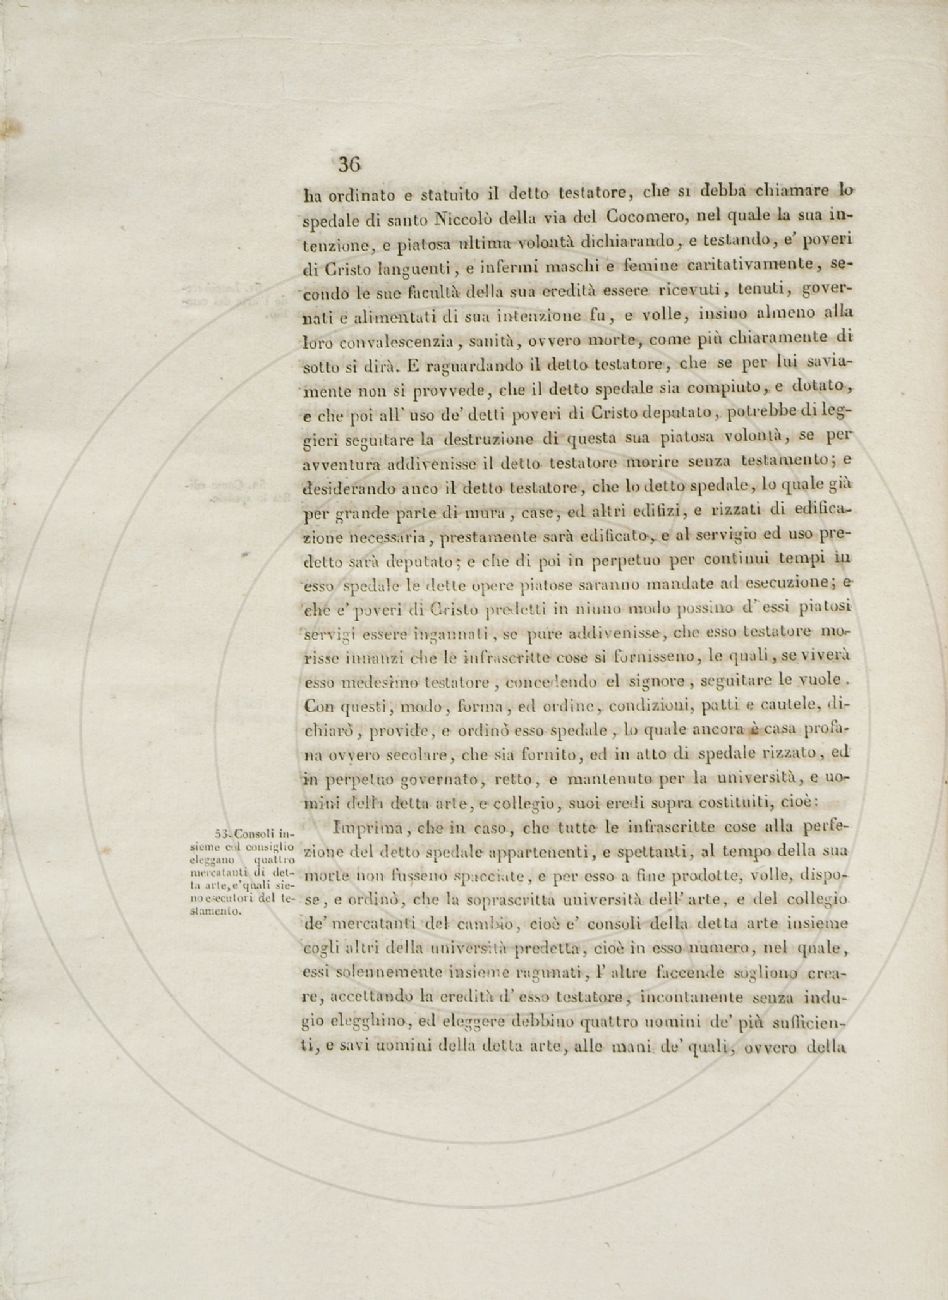 36
ha ordinato e statuito il detto testatore, che si debba chiamare lo
spedale di santo Niccolò della via del Cocomero, nel quale la sua in-
tenzione, e piatosa ultima volontà dichiarando, e testando, e' poveri
di Cristo languenti, e infermi maschi e femine caritativamente, se-
condo le sue facultà della sua eredità essere ricevuti, tenuti, gover-
nati e alimentati di sua intenzione fu, e volle, insino almeno alla
loro convalescenzia, sanità, ovvero morte, come più chiaramente di
sotto si dirà. E raguardando il detto testatore, che se per lui savia-
mente non si provvede, che il detto spedale sia compiuto, e dotato,
e che poi all' uso de' detti poveri di Cristo deputato, potrebbe di leg-
gieri seguitare la destruzione di questa sua piatosa volontà, se per
avventura addivenisse il detto testatore morire senza testamento; e
desiderando anco il detto testatore, che lo detto spedale, lo quale già
per grande parte di mura, case, ed altri edifizi, e rizzati di edifica-
zione necessaria, prestamente sarà edificato, e al servigio ed uso pre-
detto sarà deputato; e che di poi in perpetuo per continui tempi in
esso spedale le dette opere piatose saranno mandate ad esecuzione; e
che e' poveri di Cristo predetti in niuno modo possino d' essi piatosi
servigi essere ingannati, se pure addivenisse, che esso testatore mo-
risse innanzi che le infrascritte cose si fornisseno, le quali, se viverà
esso medesimo testatore, concedendo el signore, seguitare le vuole.
Con questi, modo, forma, ed ordine, condizioni, patti e cautele, di-
chiarò, provide, e ordinò esso spedale, lo quale ancora è casa profa-
na ovvero secolare, che sia fornito, ed in atto di spedale rizzato, ed
in perpetuo governato, retto, e mantenuto per la università, e uo-
mini della detta arte, e collegio, suoi eredi sopra costituiti, cioè:
53. Consoli in-
sieme col consiglio
eleggano quattro
mercatanti di det-
ta arte, e' quali sie-
no esecutori del te-
stamento.
Imprima, che in caso, che tutte le infrascritte cose alla perfe-
zione del detto spedale appartenenti, e spettanti, al tempo della sua
morte non fusseno spacciate, e per esso a fine prodotte, volle, dispo-
se, e ordinò, che la soprascritta università dell' arte, e del collegio
de' mercatanti del cambio, cioè e' consoli della detta arte insieme
cogli altri della università predetta, cioè in esso numero, nel quale,
essi solennemente insieme ragunati, l' altre faccende sogliono crea-
re, accettando la eredità d' esso testatore, incontanente senza indu-
gio elegghino, ed eleggere debbino quattro uomini de' più sufficien-
ti, e savi uomini della detta arte, alle mani de' quali, ovvero della